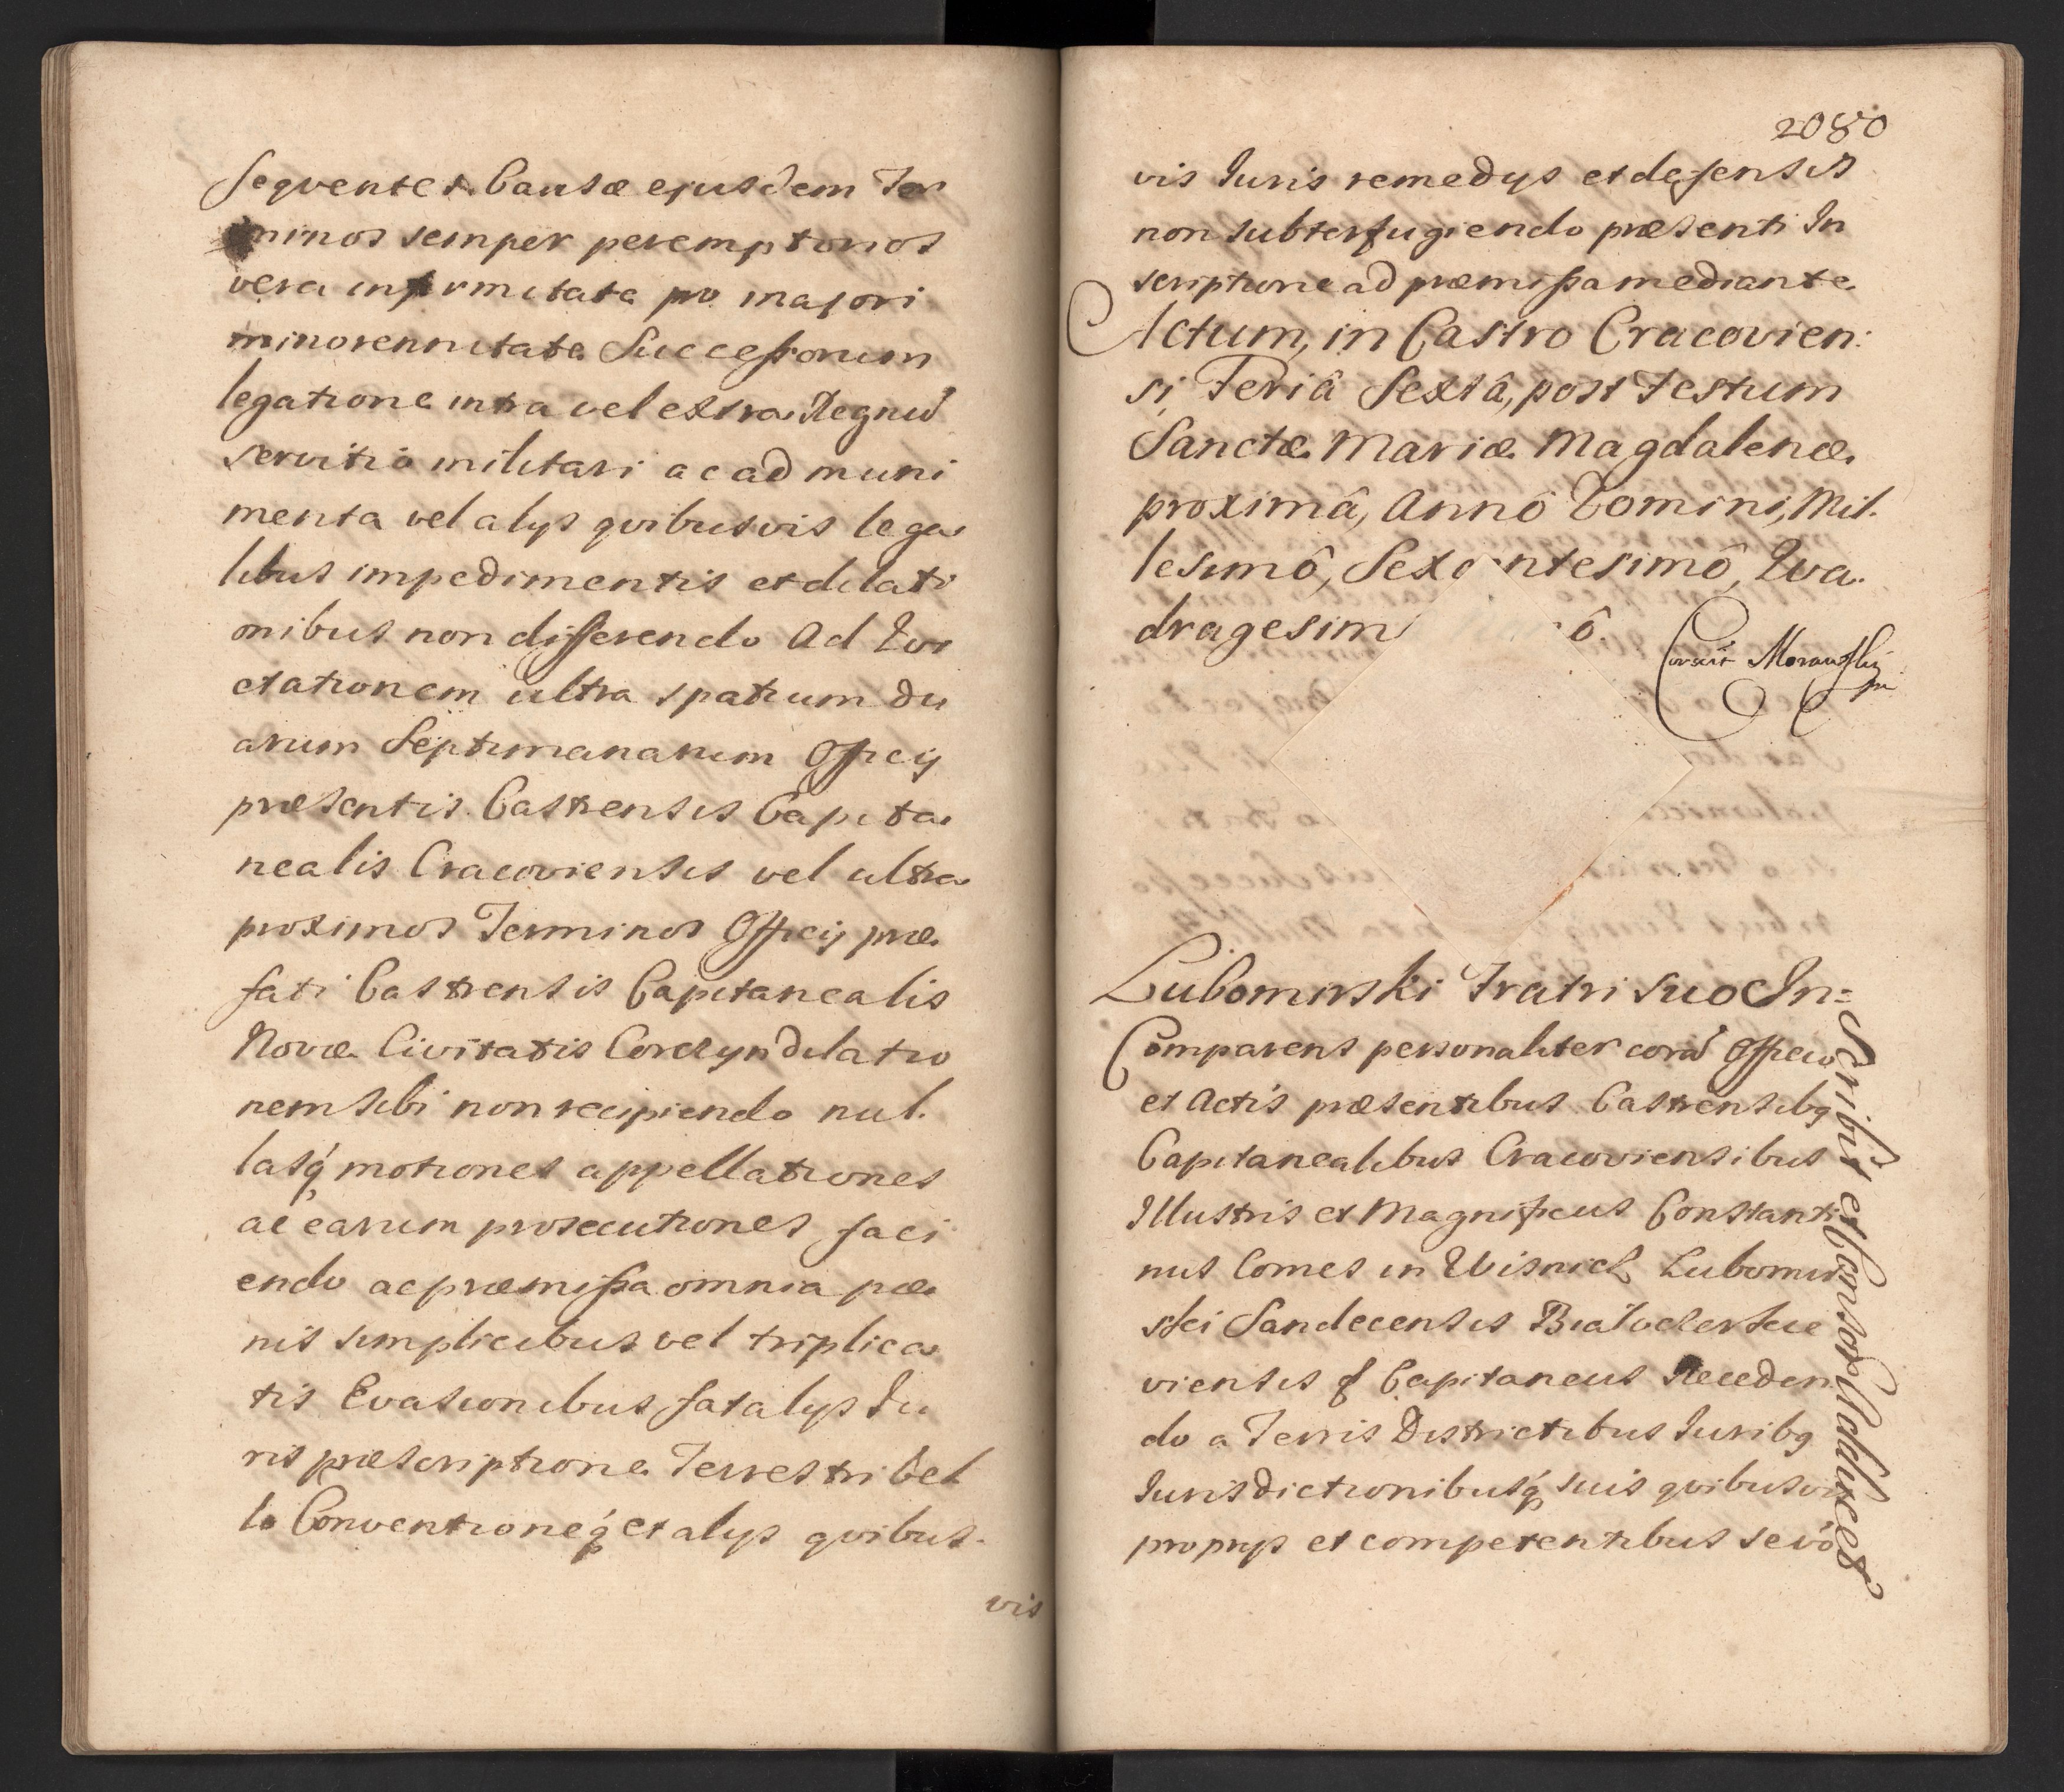 Seqventes Causæ ejusdem Ter
minos semper peremptorios
vera infirmitate pro majori
minorennitate Successorum
legatione intra vel extra Regnũ
servitio militari ac ad muni
menta vel alys qvibusvis lega
libus impedimentis et dilati
onibus non differendo Ad Evi
ctationem ultra spatium du
arum Septimanarum Officy
præsentis Castrensis Capita
nealis Cracoviensis vel ultra
proximos Terminos Officy præ
fati Castrensis Capitanealis
Novæ Civitatis Corczyn dilatio
nem sibi non recipiendo nul.
lasq́ motiones appellationes
ac earum prosecutiones faci
endo ac præmissa omnia pæ
nis simplicibus vel triplica
tis Evasionibus fatalys Ju
ris præscriptione Terrestri bel
lo Conventioneq́ et alys qvibus.
vis
2080
vis Juris remedys et defensis
non subterfugiendo præsenti In
scriptione ad præmissa mediante
Actum, in Castro Cracovien:
si, Feriâ Sextâ, post Festum
Sanctæ Mariæ Magdalenæ
proximâ, Annô Domini, Mil.
lesimô, Sex ntesimô, Qva.
dragesim ô.
Correxit Morawski
Lubomirski Fratri suo In=
scribit et Consors Advices
Comparens personaliter corã Officio
et Actis præsentibus Castrensibq
Capitanealibus Cracoviensibus
Illustris et Magnificus Constanti
nus Comes in Wisnicz Lubomir
ski Sandecensis Białocerkie
viensis q Capitaneus Receden
do a Terris Districtibus Juribq
Jurisdictionibusq́ suis qvibusvis
proprys et competentibus sevò